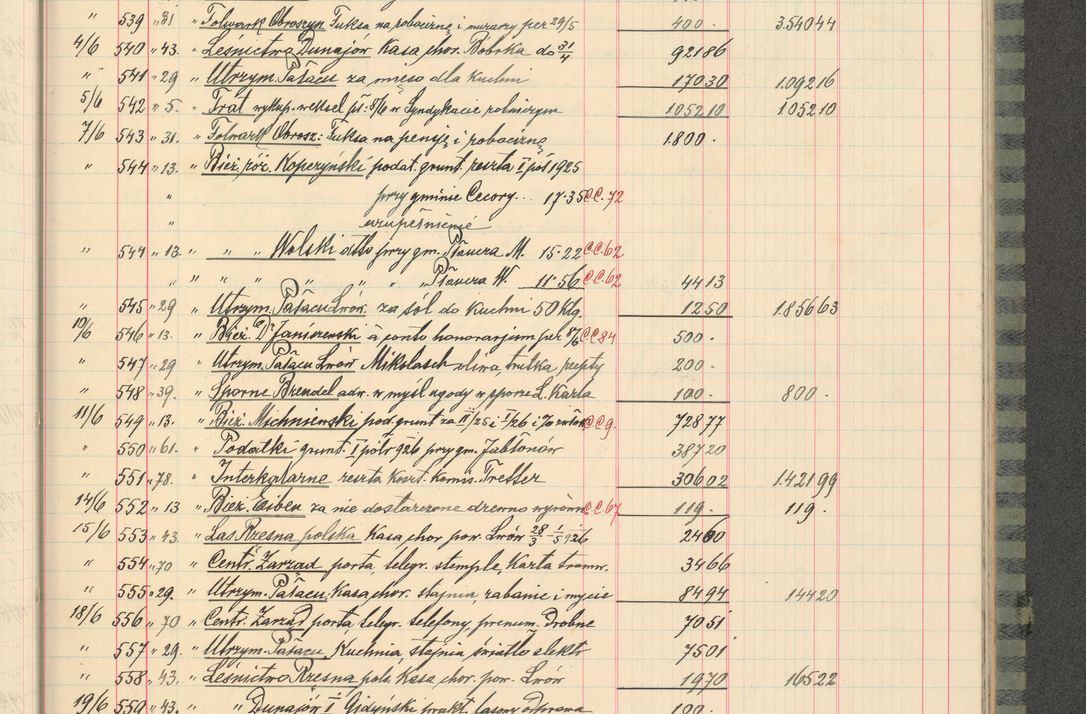 " 539 " 31 " Folwark Obroszyn Fuksa na robociznę i murarzy per 29/5 400 · 3.540 44
4/6 540 " 43. " Leśnictwo Dunajów Kasa chor. Bobrka do 31/4 921 86
" 541 " 29 " Utrzym. Pałacu za mięso dla kuchni 170 30 1.092 16
5/6 542 " 5. " Trat wykup. weksel pł. 8/6 w Syndykacie rolniczym 1052 10 1052 10
7/6 543 " 31. " Folwark Obrosz: Fuksa na pensję i robociznę 1.800 ·
" 544 " 13. " Bież. róż. Kopczyński podat. grunt. reszta I pół 1925
" przy gminie Cecory... 17·35 CC. 72
" uzupełnienie
" 544 " 13. " " " Wolski dtto przy gm. Płaucza M. 15·22 CC. 62
" " " " " " Płaucza W. 11·56 CC. 62 44 13
" 545 " 29 " Utrzym. Pałacu Lwów za sól do kuchni 50 Klg. 12 50 1.856 63
10/6 546 " 13. " Bież. Dr Janiszewski à conto honorarjum per 8/6 CC 84 500 ·
" 547 " 29 " Utrzym. Pałacu Lwów Mikolasch oliwa, trutka 200 ·
" 548 " 39. " Sporne Brendel adw. w myśl ugody w sporze L. Karla 100 · 800 ·
11/6 549 " 13. " Bież. Michniewski pod. grunt za II/25 i I/26 i CC 9. 728 77
" 550 " 61. " Podatki grunt. I półr 926 przy gm. Jabłonów 387 20
" 551 " 78. " Interkalarne reszta Koszt. Komis. Tretter 306 02 1.421 99
14/6 552 " 13 " Bież. Eiben za nie dostarczone drzewno CC. 67 119 · 119 ·
15/6 553 " 43. " Las Rzesna polska Kasa chor. pow. Lwów 28/3 - 1/5 926 24 60
" 554 " 70 " Centr. Zarząd porta, telegr. stemple, Karta tramw. 34 66
" 555 " 29. " Utrzym. Pałacu, Kasa chor. stajnia, rąbanie i mycie 84 94 144 20
18/6 556 " 70 " Centr. Zarząd porta telegr. telefony, prenum. Drobne 70 51
" 557 " 29. " Utrzym. Pałacu, Kuchnia, stajnia, światło elektr 75 01
" 558 " 43. " Leśnictwo Rzesna pols. Kasa chor. pow. Lwów 19 70 165 22
19/6 559 " 43. " " Dunajów I Gidyński prakt. lasowy odprawa 100 ·